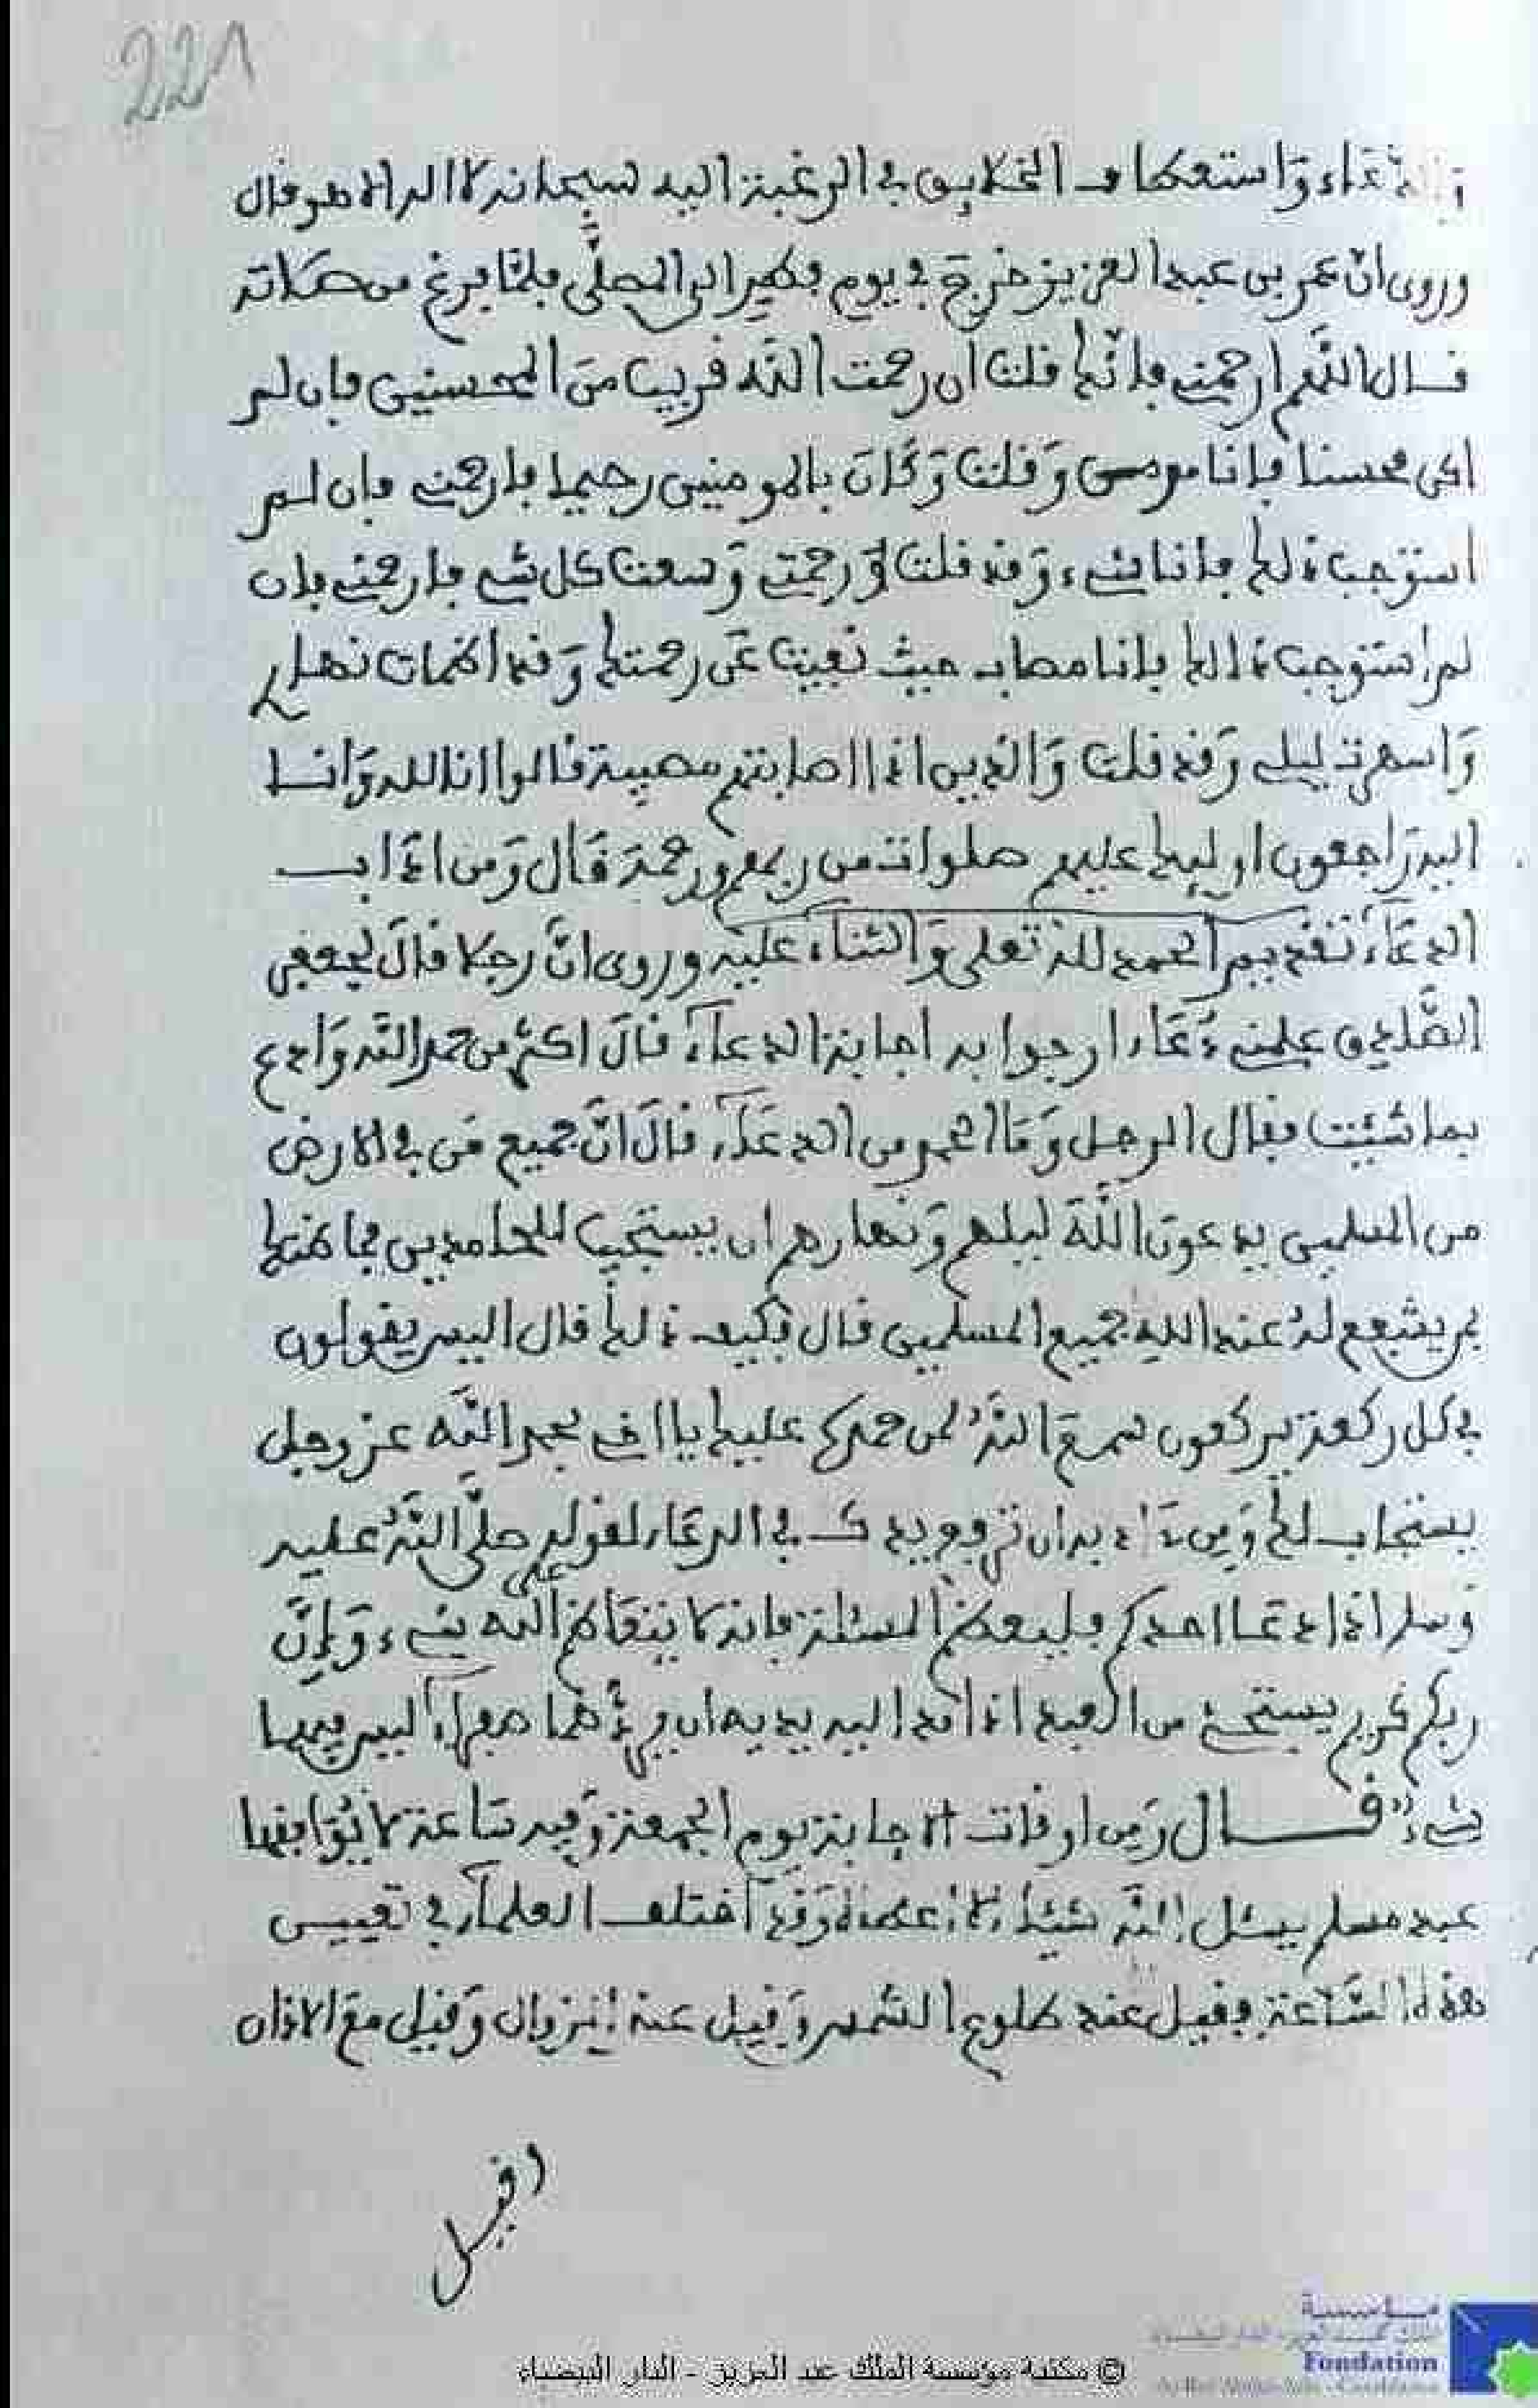 221
واستعطاف الخلايق في الرغبة اليه سبحانه لا اله الا هو قال
وروى ان عمر بن عبد العزيز خرج في يوم مطير الى المصلى فلما فرغ من صلاته
قال اللهم ارحمني فانك قلت ان رحمت الله قريب من المحسنين فان لم
اكن محسنا فانا مومن وقلت وكان بالمومنين رحيما فارحمني فان لم
استوجب ذلك فانا شيء وقد قلت ورحمتي وسعت كل شيء فارحمني فان
لم استوجب ذالك فانا مصاب حيث نفيت عن رحمتك وقد اظمات نهاري
واسهرت ليلي وقد قلت والذين اذا اصابتهم مصيبة قالوا انا لله وانا
اليه راجعون اوليك عليهم صلوات من ربهم ورحمة قال ومن اداب
الدعاء تقديم الحمد لله تعلى والثناء عليه وروى ان رجلا قال لجعفر
الصادق علمني دعاء ارجوا به اجابة الدعاء قال اكثر من حمد الله وادع
بما شيت فقال الرجل وما الحمد من الدعاء قال ان جميع من في الارض
من المسلمين يدعون الله ليلهم ونهارهم ان يستجيب للحامدين فما ظنك
بمن يشفع له عند الله جميع المسلمين قال فكيف ذلك قال اليس يقولون
في كل ركعة يركعون سمع الله لمن حمده عليك يا اخي بحمد الله عز وجل
يستجاب لك ومن ادابه ان ترفع يدك في الدعاء لقوله صلى الله عليه
وسلم اذا دعا احدكم فليعظم المسئلة فانه لا يتعاظم على الله شيء وان
ربكم كريم يستحي من العبد اذا مد اليه يديه ان يردهما صفرا ليس فيهما
شيء قال ومن اوقات الاجابة يوم الجمعة وفيه ساعة لا يوافقها
عبد مسلم يسئل الله شيئا الا اعطاه وقد اختلف العلماء في تعيين
هذه الساعة فقيل عند طلوع الشمس وقيل عند الزوال وقيل مع الاذان
وقيل
مؤسسة
Fondation
© مكتبة مؤسسة الملك عبد العزيز - الدار البيضاء